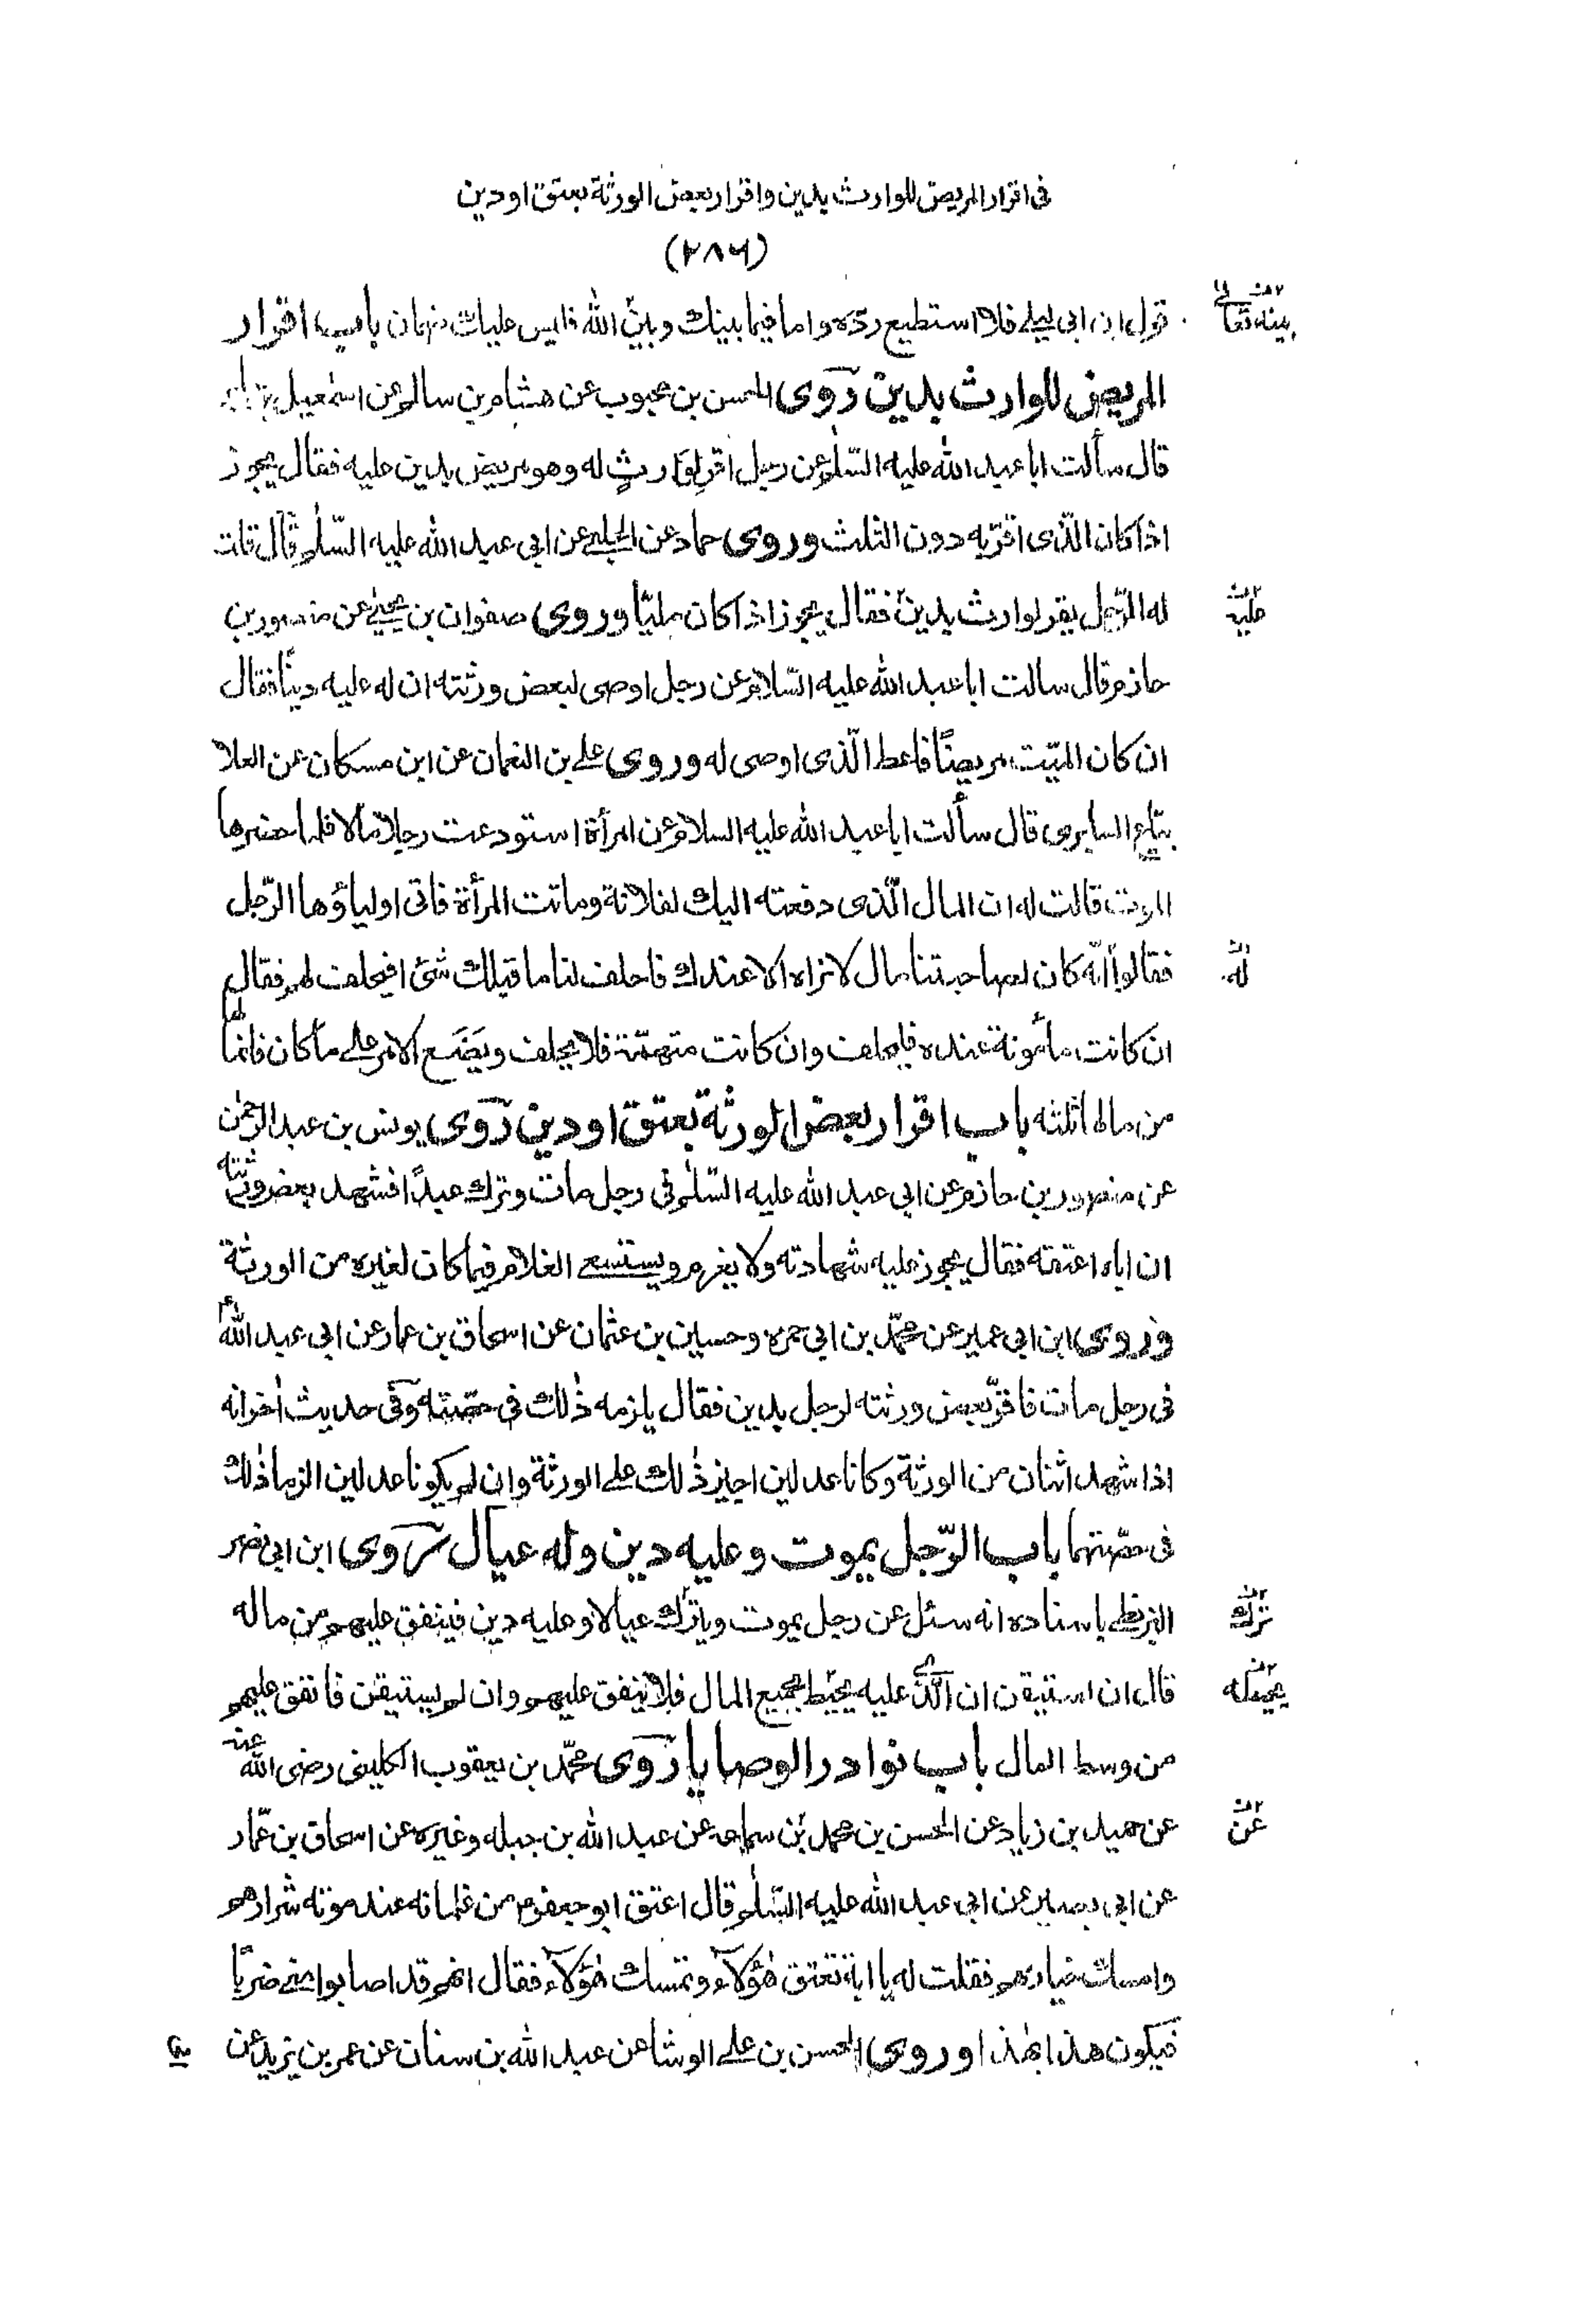 فى اقرار المريض للوارث بدين واقرار بعض الورثة بعتق او دين
(٢٨٦)
قول ابن ابى ليلى فلا استطيع ردّه واما فيما بينك وبين الله فليس عليك ضمان باب اقرار
المريض للوارث بدين روى الحسن بن محبوب عن هشام بن سالم عن اسمعيل بن جابر
قال سألت ابا عبد الله عليه السّلم عن رجل اقر لوارث له وهو مريض بدين عليه فقال يجوز
اذا كان الّذى اقرّ به دون الثلث وروى حماد عن الحلبى عن ابى عبد الله عليه السّلم قال قلت
له الرّجل يقر لوارث بدين فقال يجوز اذا كان مليّا وروى صفوان بن يحيى عن منصور بن
حازم قال سالت ابا عبد الله عليه السّلام عن رجل اوصى لبعض ورثته ان له عليه دينًا فقال
ان كان الميّت مريضًا فاعط الّذى اوصى له وروى على بن النعمان عن ابن مسكان عن العلا
بيّاع السابرى قال سألت ابا عبد الله عليه السلام عن امرأة استودعت رجلا مالا فلما حضرها
الموت قالت له ان المال الّذى دفعته اليك لفلانة وماتت المرأة فاتى اولياؤها الرّجل
فقالوا انّه كان لصاحبتنا مال لا نراه الا عندك فاحلف لنا ما قبلك شئ افيحلف لهم فقال
ان كانت مأمونة عنده فليحلف وان كانت متهمّة فلا يحلف ويَضَع الامر على ما كان فانما لها
من مالها ثلثه باب اقرار بعض الورثة بعتق او دين روى يونس بن عبد الرحمن
عن منصور بن حازم عن ابى عبد الله عليه السّلم فى رجل مات وترك عبدًا فشهد بعض ورثته
ان اباه اعتقه فقال يجوز عليه شهادته ولا يغرم ويستسعى الغلام فيما كان لغيره من الورثة
وروى ابن ابى عمير عن محمّد بن ابى حمزه وحسين بن عثمان عن اسحاق بن عمار عن ابى عبد الله ع
فى رجل مات فاقرّ بعض ورثته لرجل بدين فقال يلزمه ذلك فى حصّته وفى حديث اخر انه
اذا شهد اثنان من الورثة وكانا عدلين اجيز ذلك على الورثة وان لم يكونا عدلين الزما ذلك
فى حصّتهما باب الرّجل يموت وعليه دين وله عيال روى ابن ابى نصر
البزنطى باسناده انه سئل عن رجل يموت ويترك عيالا وعليه دين فينفق عليهم من ماله
قال ان استيقن ان الذى عليه يحيط بجميع المال فلا ينفق عليهم وان لم يستيقن فانفق عليهم
من وسط المال باب نوادر الوصايا روى محمّد بن يعقوب الكلينى رضى الله عنه
عن حميد بن زياد عن الحسن بن محمد بن سماعه عن عبد الله بن جبله وغيره عن اسحاق بن عمّار
عن ابى بصير عن ابى عبد الله عليه السّلم قال اعتق ابو جعفر م من غلمانه عند موته شرارهم
وامسك خيارهم فقلت له يا ابة تعتق هؤلاء وتمسك هؤلاء فقال انهم قد اصابوا منى ضربًا
فيكون هذا بهذا وروى الحسن بن على الوشا عن عبد الله بن سنان عن عمر بن يزيد عن
بينه تعالى
عليه
له
ترك
يحيط له
عن